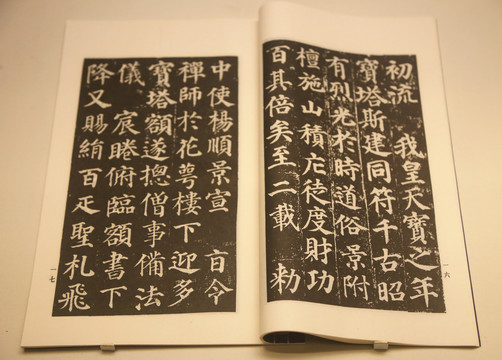 初流 我皇天寶之年
寶塔斯建同符千古昭
有烈光於時道俗景附
檀施山積庀徒度財功
百其倍矣至二載 勅
一六
中使楊順景宣 旨令
禪師於花萼樓下迎多
寶塔額遂摠僧事備法
儀 宸睠俯臨額書下
降又賜絹百疋聖札飛
一七